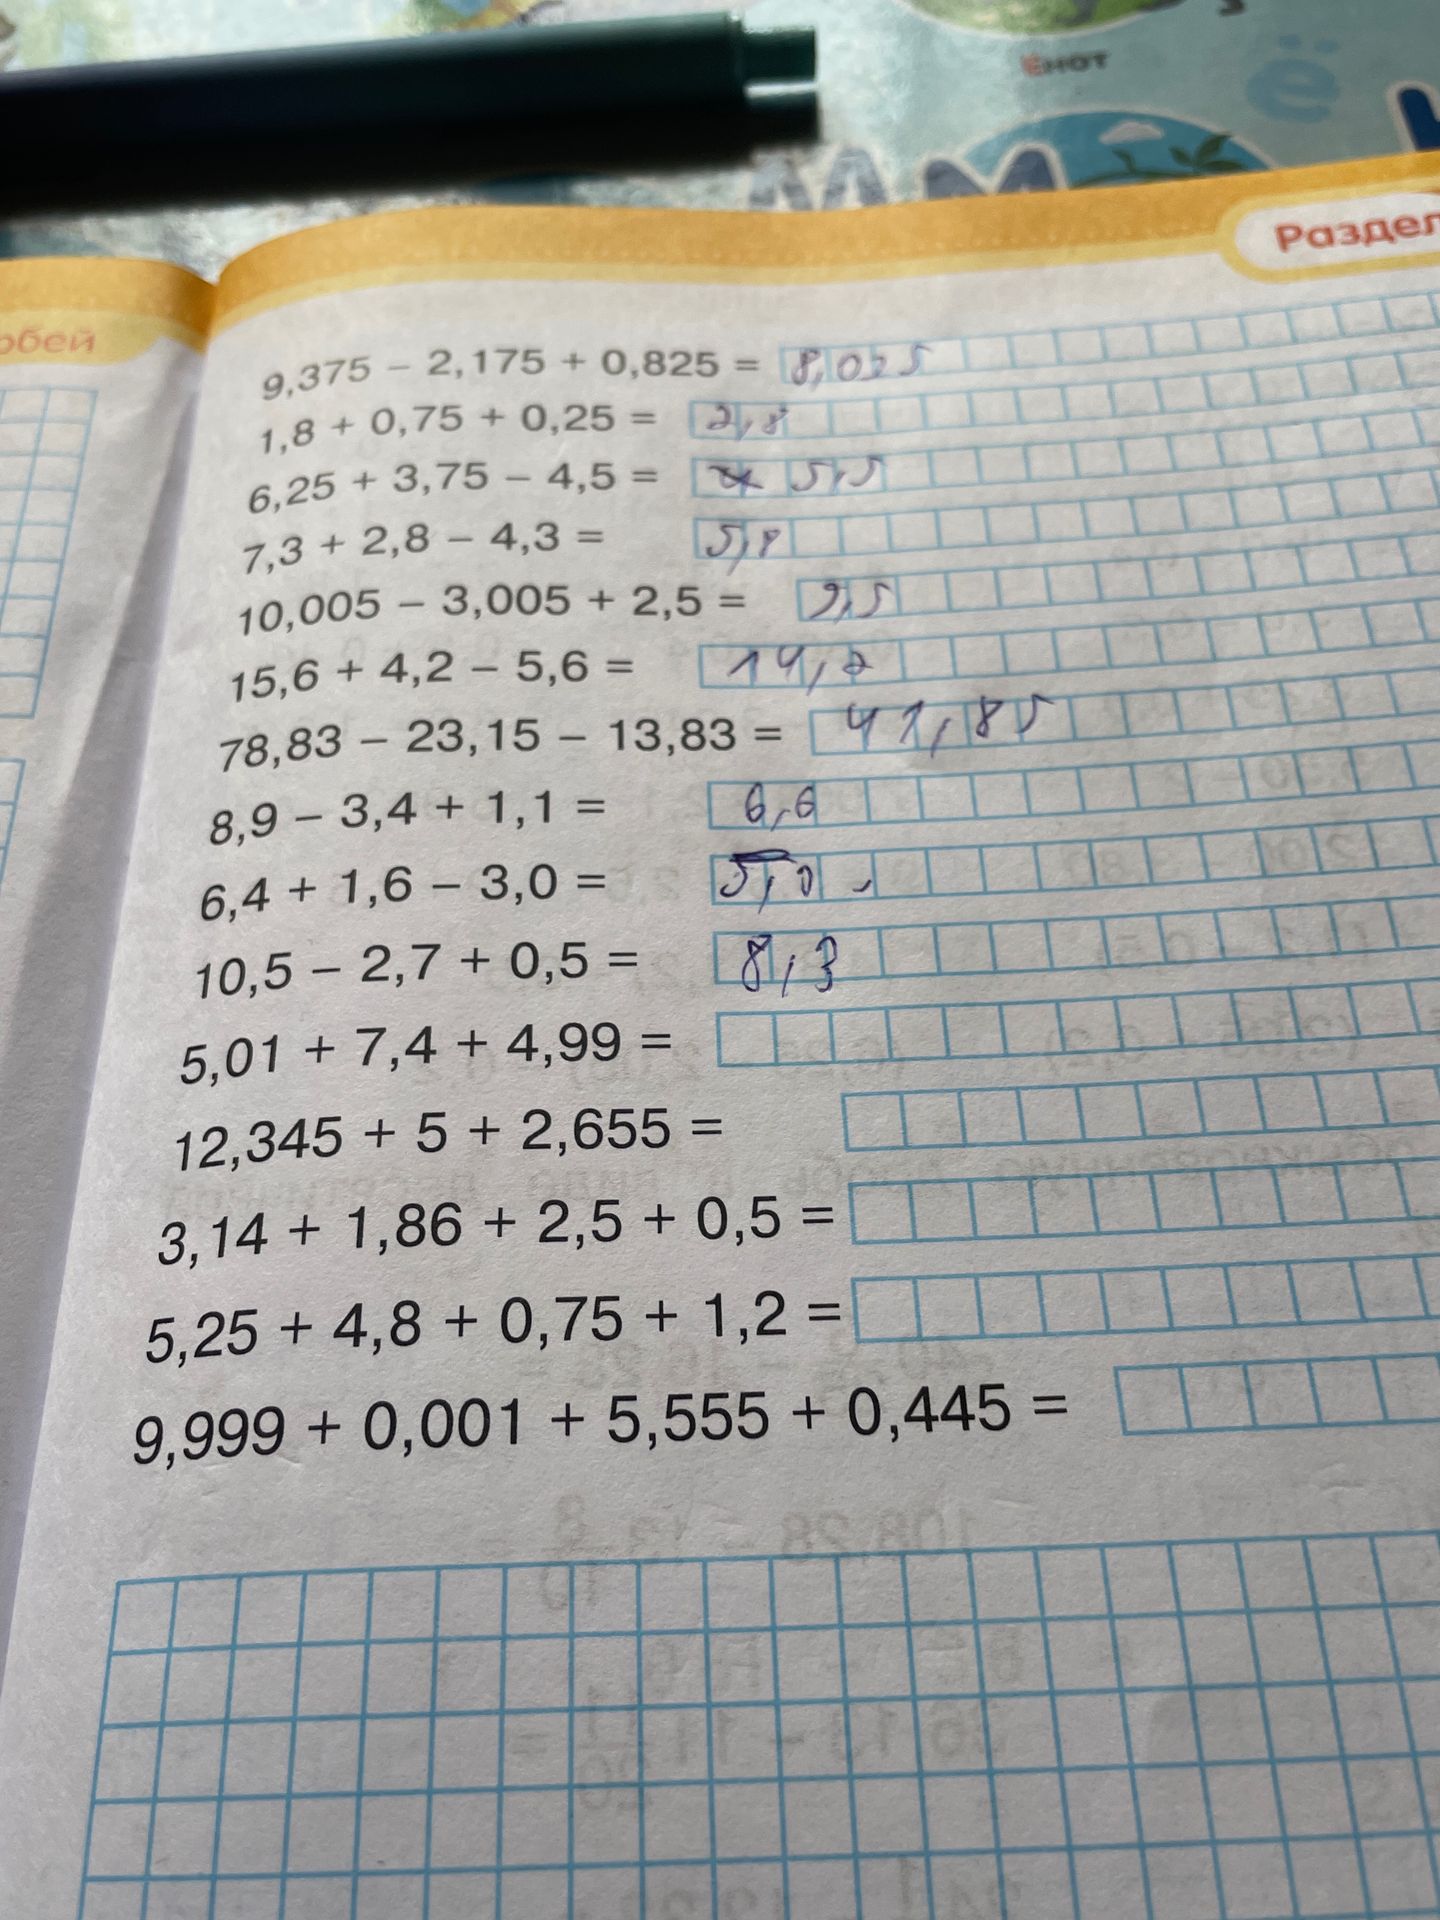 Енот
ё
Раздел
обей
9,375 – 2,175 + 0,825 = 8,025
1,8 + 0,75 + 0,25 = 2,8
6,25 + 3,75 – 4,5 = 5,5
7,3 + 2,8 – 4,3 = 5,8
10,005 – 3,005 + 2,5 = 9,5
15,6 + 4,2 – 5,6 = 14,2
78,83 – 23,15 – 13,83 = 41,85
8,9 – 3,4 + 1,1 = 6,6
6,4 + 1,6 – 3,0 = 5,0
10,5 – 2,7 + 0,5 = 8,3
5,01 + 7,4 + 4,99 =
12,345 + 5 + 2,655 =
3,14 + 1,86 + 2,5 + 0,5 =
5,25 + 4,8 + 0,75 + 1,2 =
9,999 + 0,001 + 5,555 + 0,445 =